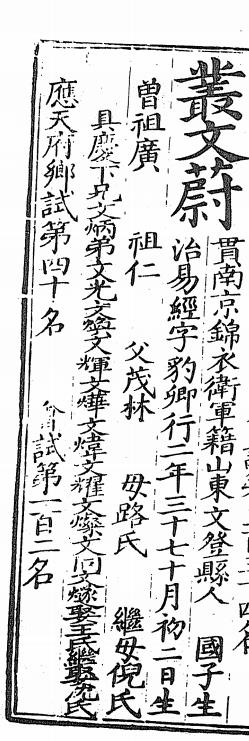 叢文蔚
貫南京錦衣衛軍籍山東文登縣人 國子生
治易經字豹卿行二年三十七十月初二日生
曾祖廣 祖仁 父茂林 母路氏 繼母倪氏
具慶下兄文炳弟文光文文輝文燁文煒文耀文燦文同文娶王氏繼娶沈氏
應天府鄉試第四十名 會試第一百二名